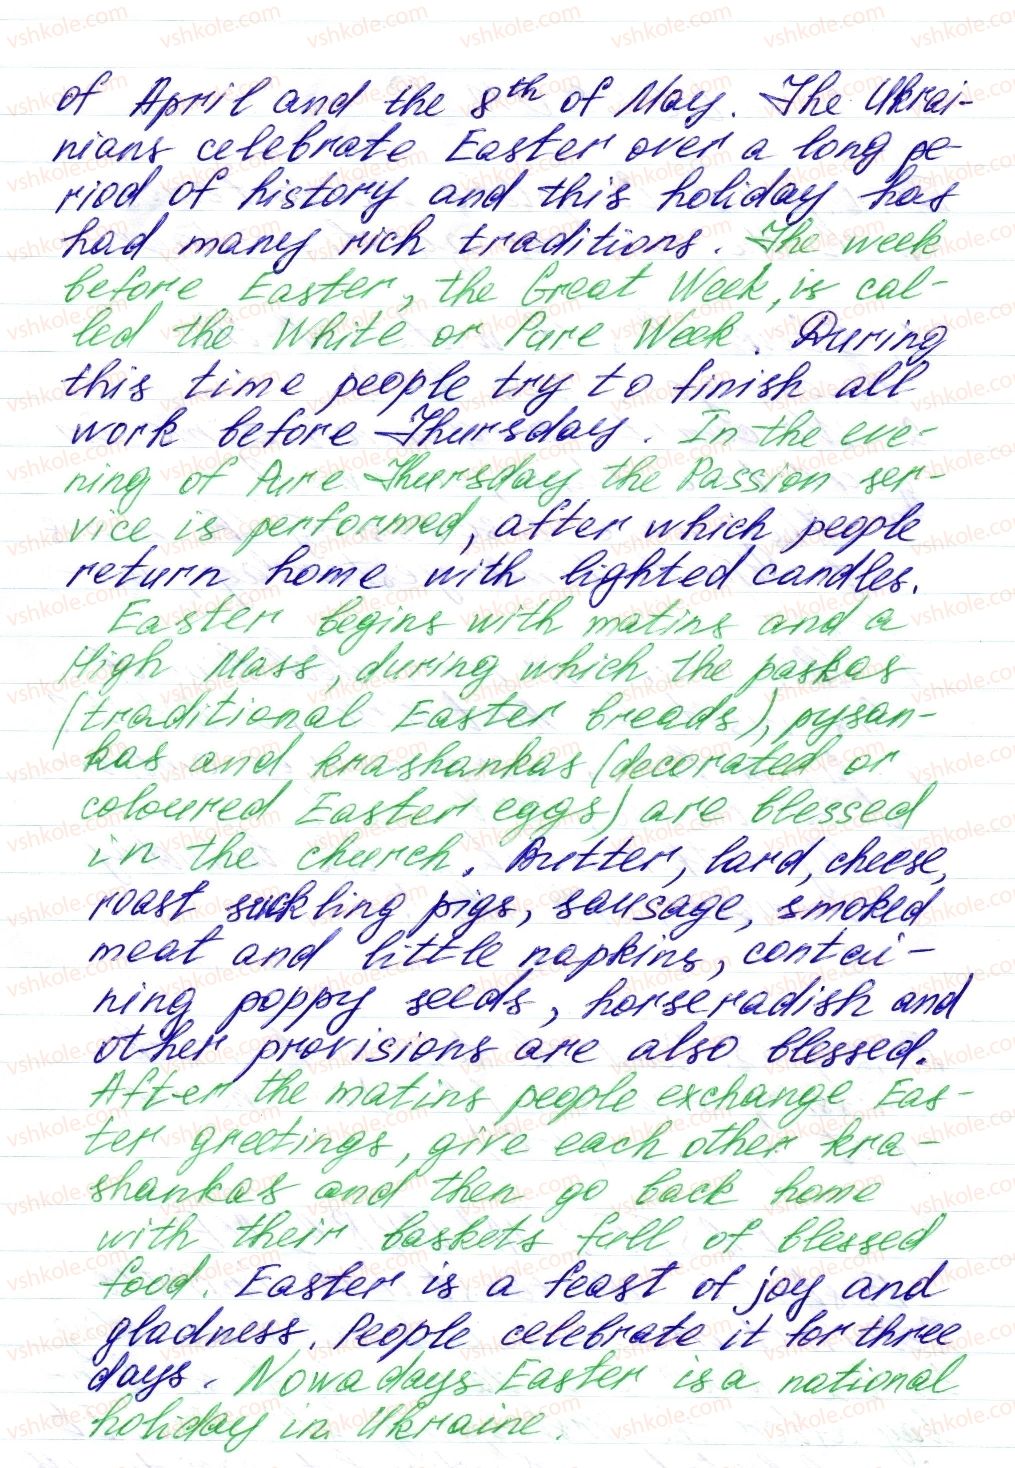 of April and the 8th of May. The Ukrai-
nians celebrate Easter over a long pe-
riod of history and this holiday has
had many rich traditions. The week
before Easter, the Great Week, is cal-
led the White or Pure Week. During
this time people try to finish all
work before Thursday. In the eve-
ning of Pure Thursday the Passion ser-
vice is performed, after which people
return home with lighted candles.
Easter begins with matins and a
High Mass, during which the paskas
(traditional Easter breads), pysan-
kas and krashankas (decorated or
coloured Easter eggs) are blessed
in the church. Butter, lard, cheese,
roast suckling pigs, sausage, smoked
meat and little napkins, contai-
ning poppy seeds, horseradish and
other provisions are also blessed.
After the matins people exchange Eas-
ter greetings, give each other kra-
shankas and then go back home
with their baskets full of blessed
food. Easter is a feast of joy and
gladness. People celebrate it for three
days. Nowadays Easter is a national
holiday in Ukraine.
vshkole.com